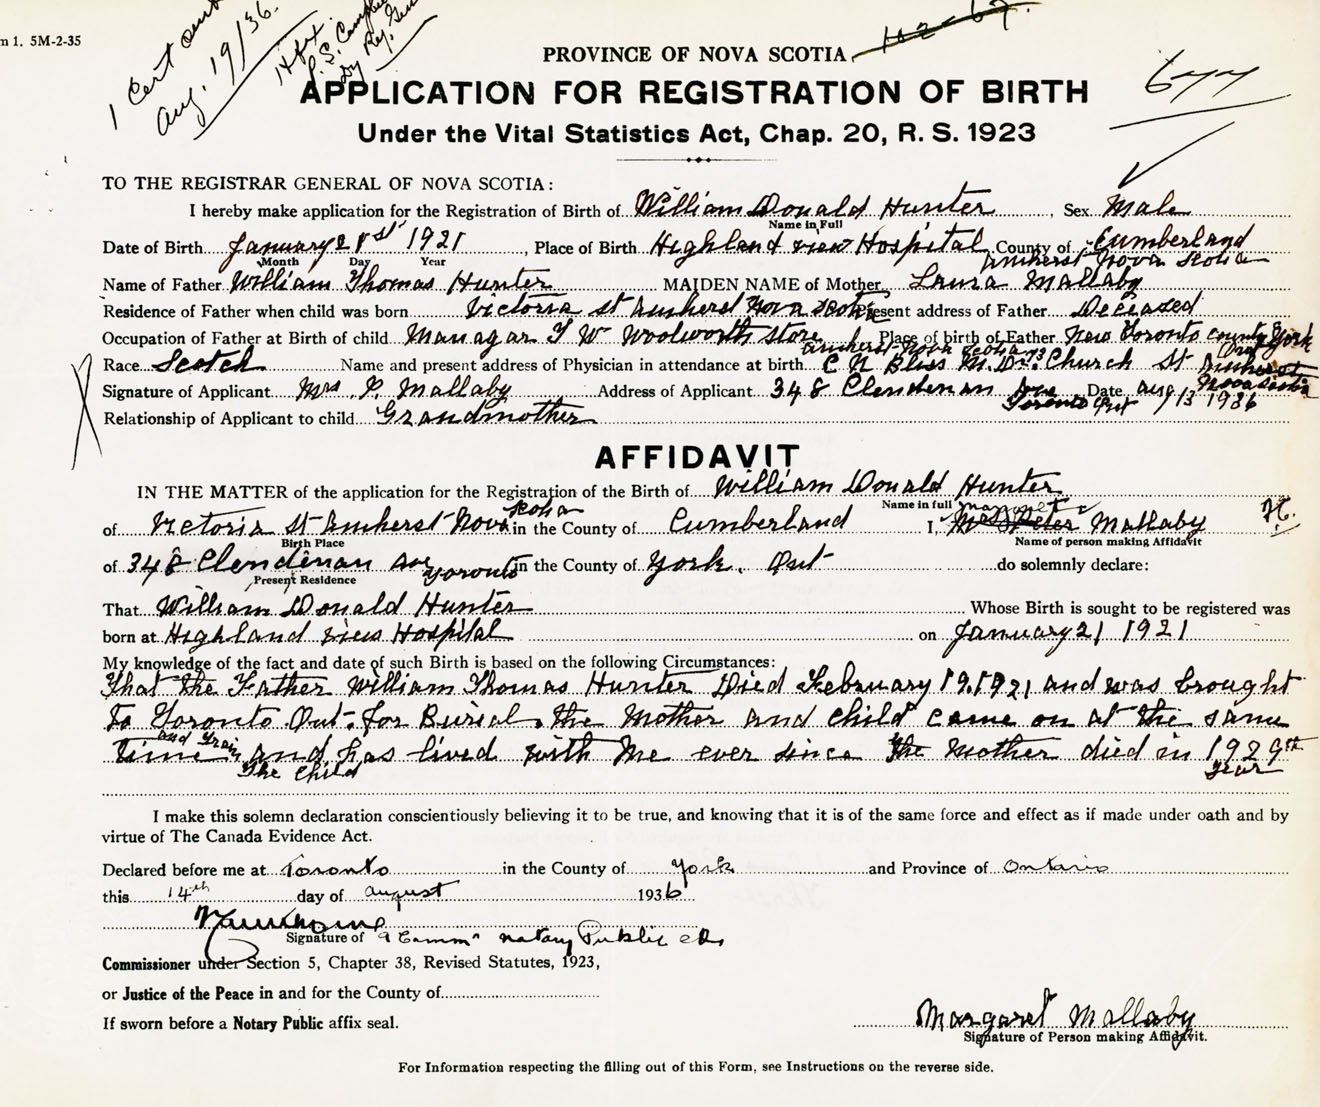 m 1. 5M-2-35
1 Cert
Aug. 19/36.
Hfx.
Dy Reg. Gen
102-67.
PROVINCE OF NOVA SCOTIA
APPLICATION FOR REGISTRATION OF BIRTH
Under the Vital Statistics Act, Chap. 20, R. S. 1923
TO THE REGISTRAR GENERAL OF NOVA SCOTIA:
I hereby make application for the Registration of Birth of William Donald Hunter, Sex Male
Name in Full
Date of Birth January 21st 1921, Place of Birth Highland view Hospital County of Cumberland
Month Day Year
Amherst Nova Scotia
Name of Father William Thomas Hunter MAIDEN NAME of Mother Laura Mallaby
Residence of Father when child was born Victoria st Amherst Nova Scotia Present address of Father Deceased
Occupation of Father at Birth of child Managar F W Woolworth store Place of birth of Father New Toronto county York
Amherst Nova Scotia Ont
Race Scotch Name and present address of Physician in attendance at birth C N Bliss M.D. 73 Church St Amherst
Nova Scotia
Signature of Applicant Mrs. P. Mallaby Address of Applicant 348 Clendenan Ave Date Aug 13 1936
Toronto Ont
Relationship of Applicant to child Grandmother
AFFIDAVIT
IN THE MATTER of the application for the Registration of the Birth of William Donald Hunter
Name in full
Scotia Margaret
of Victoria St Amherst Nova in the County of Cumberland I, Mrs Peter Mallaby
Birth Place Name of person making Affidavit
of 348 Clendenan Ave Toronto in the County of York. Ont do solemnly declare:
Present Residence
That William Donald Hunter Whose Birth is sought to be registered was
born at Highland view Hospital on January 21 1921
My knowledge of the fact and date of such Birth is based on the following Circumstances:
That the Father William Thomas Hunter Died February 19.1921 and was brought
to Toronto Ont. for Burial. the Mother and child came on at the same
and train
time and has lived with me ever since the Mother died in 1929th
The Child year
I make this solemn declaration conscientiously believing it to be true, and knowing that it is of the same force and effect as if made under oath and by
virtue of The Canada Evidence Act.
Declared before me at Toronto in the County of York and Province of Ontario
this 14th day of August 1936
Signature of a Commr Notary Public
Commissioner under Section 5, Chapter 38, Revised Statutes, 1923,
or Justice of the Peace in and for the County of
If sworn before a Notary Public affix seal.
Margaret Mallaby
Signature of Person making Affidavit.
For Information respecting the filling out of this Form, see Instructions on the reverse side.